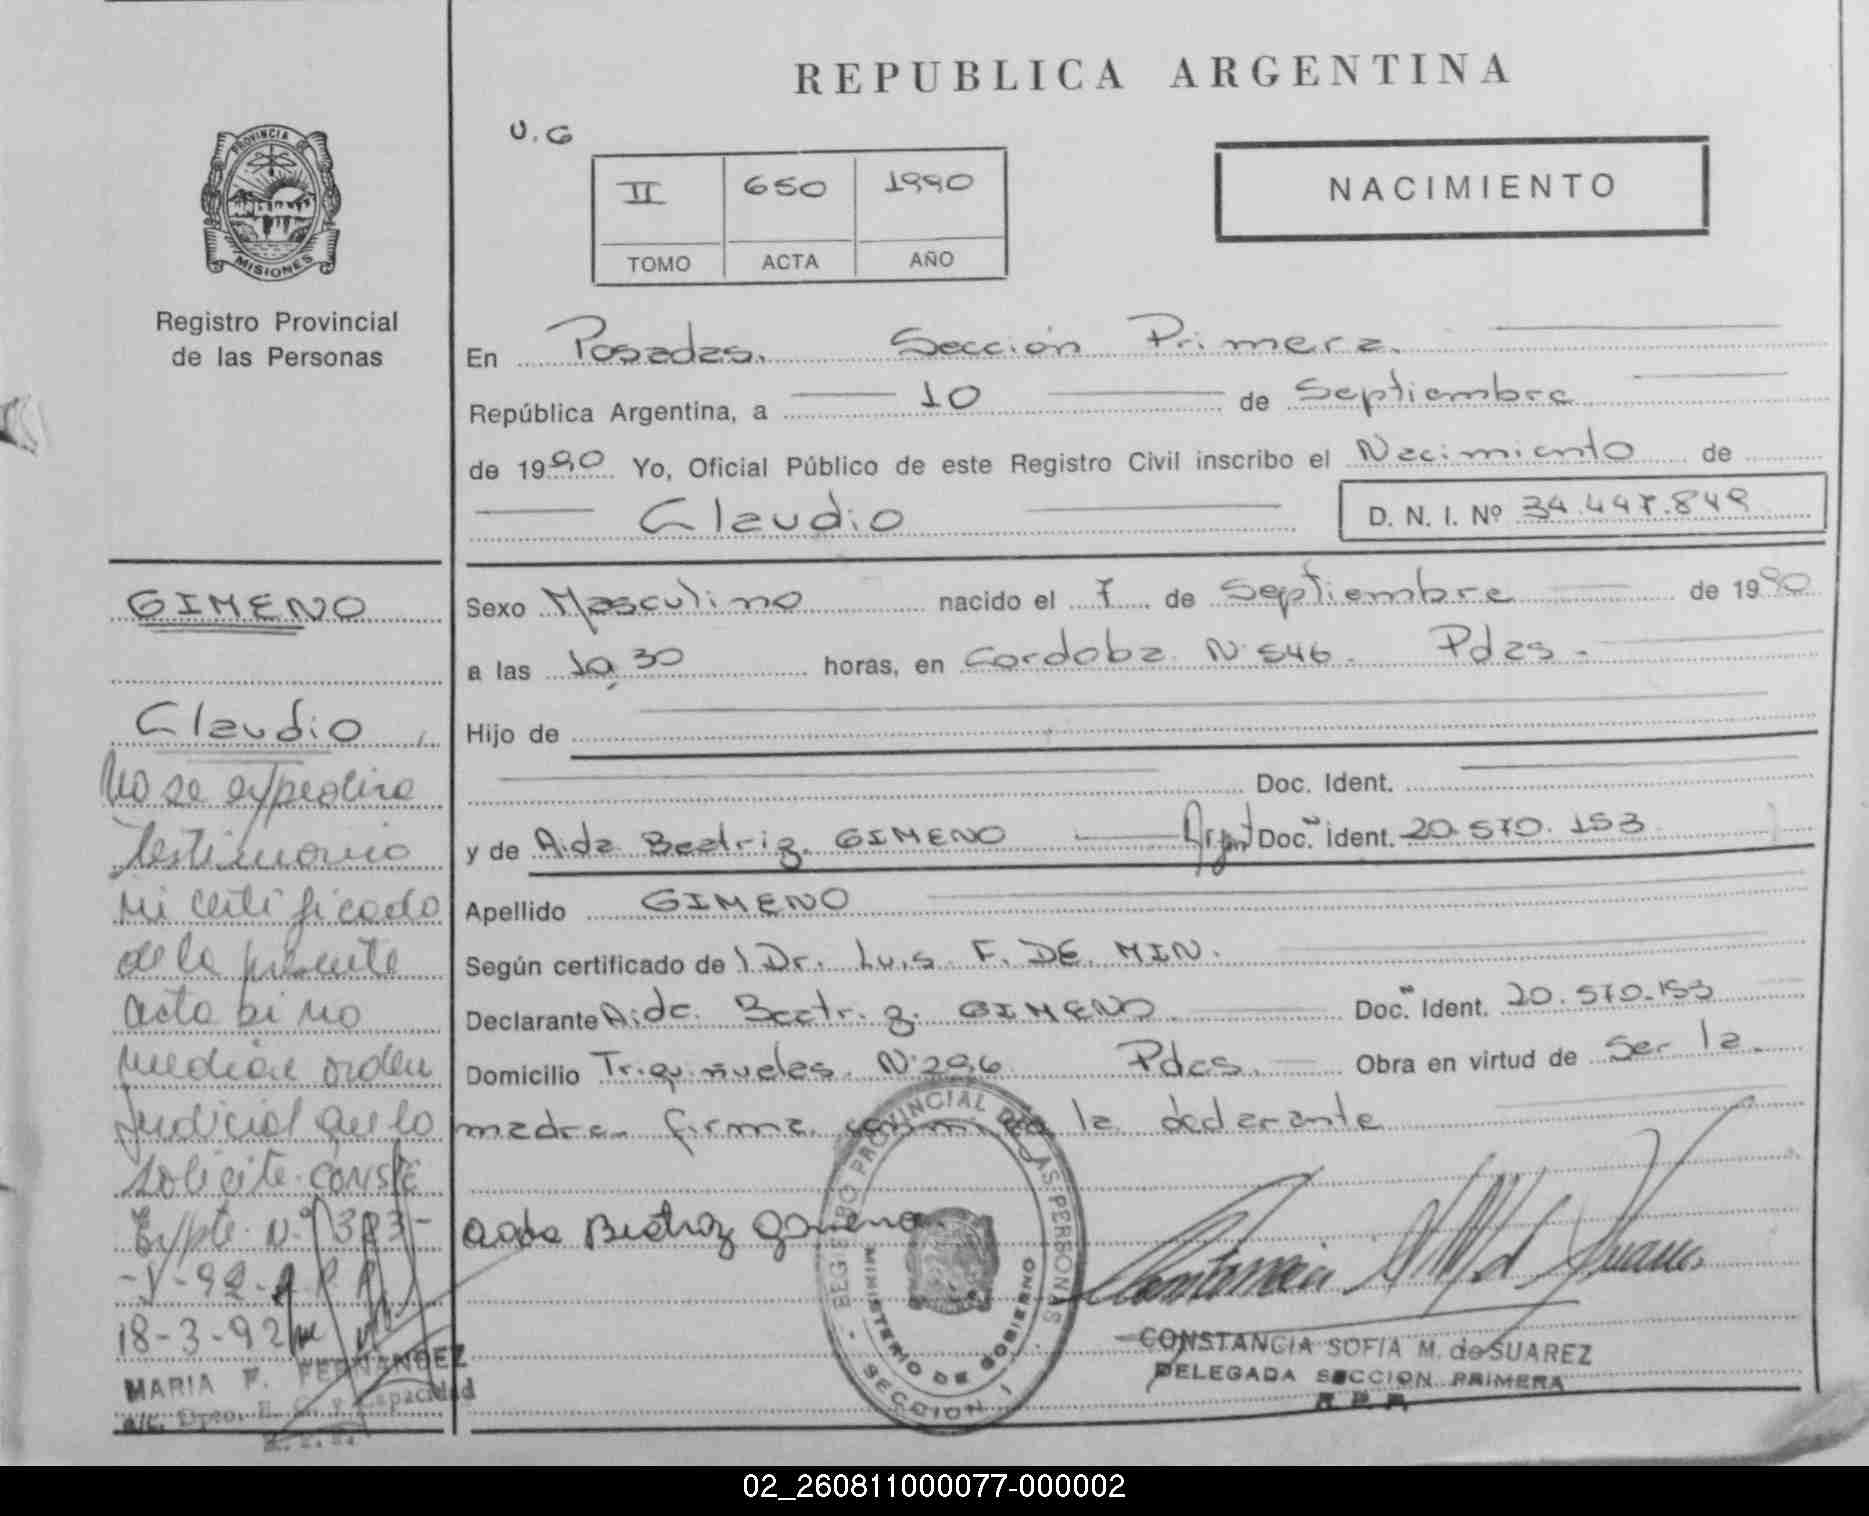 REPUBLICA ARGENTINA
U.G
II 650 1990
TOMO ACTA AÑO
NACIMIENTO
PROVINCIA DE
MISIONES
Registro Provincial
de las Personas
En Posadas. Sección Primera.
República Argentina, a 10 de Septiembre
de 1990 Yo, Oficial Público de este Registro Civil inscribo el Nacimiento de
Claudio D. N. I. Nº 34.447.849
Sexo Masculino nacido el 7 de Septiembre de 1990
a las 10,30 horas, en Cordoba Nº 546. Pdas.
Hijo de
Doc. Ident.
y de Aida Beatriz GIMENO Argent Doc. Ident. 20.570.153
Apellido GIMENO
Según certificado del Dr. Luis F. DE MIN.
Declarante Aida Beatriz GIMENO Doc. Ident. 20.570.153
Domicilio Triquiñueles Nº 296 Pdas. Obra en virtud de ser la
madre firma conmigo la declarante
Aida Beatriz Gimeno
REGISTRO PROVINCIAL DE LAS PERSONAS
MINISTERIO DE GOBIERNO
SECCION I
CONSTANCIA SOFIA M. de SUAREZ
DELEGADA SECCION PRIMERA
R.P.P.
GIMENO
Claudio
No se expedira
testimonio
ni certificado
de la presente
acta si no
media orden
judicial que lo
solicite. conste
Expte. Nº 383-
-V-92-R.P.P.
18-3-92
MARIA F. FERNANDEZ
A/C. Dpto. E. C. y Capacidad
R.P.P.
02_260811000077-000002